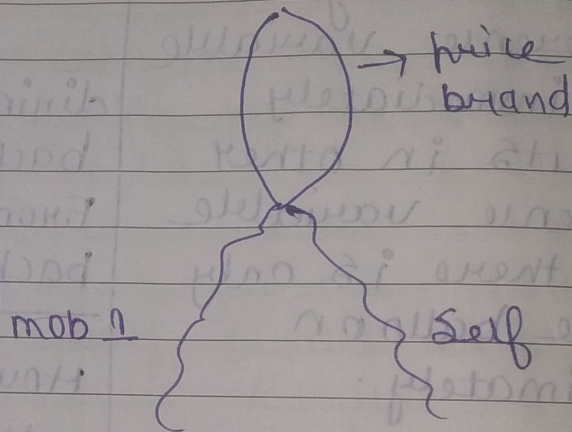 price
brand
mob 1
self